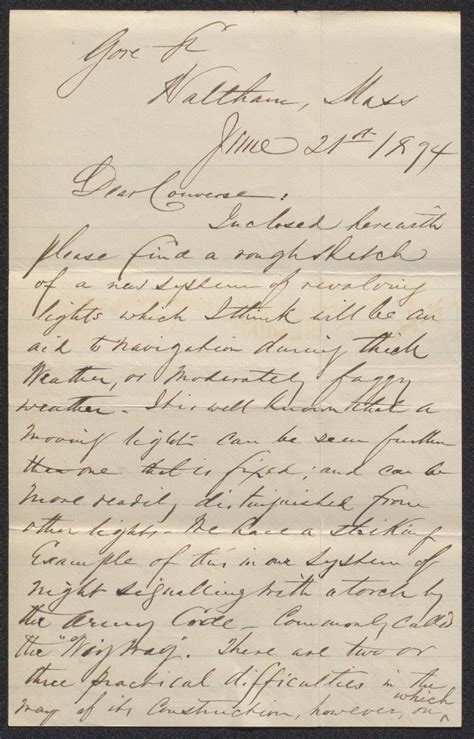 Gore St
Waltham, Mass
June 21st 1894
Dear Converse:
Inclosed herewith
please find a rough sketch
of a new system of revolving
lights which I think will be an
aid to navigation during thick
Weather, or Moderately foggy
weather. It is well known that a
Moving light can be seen further
than one that is fixed; and can be
More readily distinguished from
other lights. We have a striking
Example of this in our system of
Night signalling with a torch by
the Army Code - Commonly called
the "Wig Wag". There are two or
three practical difficulties in the
way of its Construction, however, on which